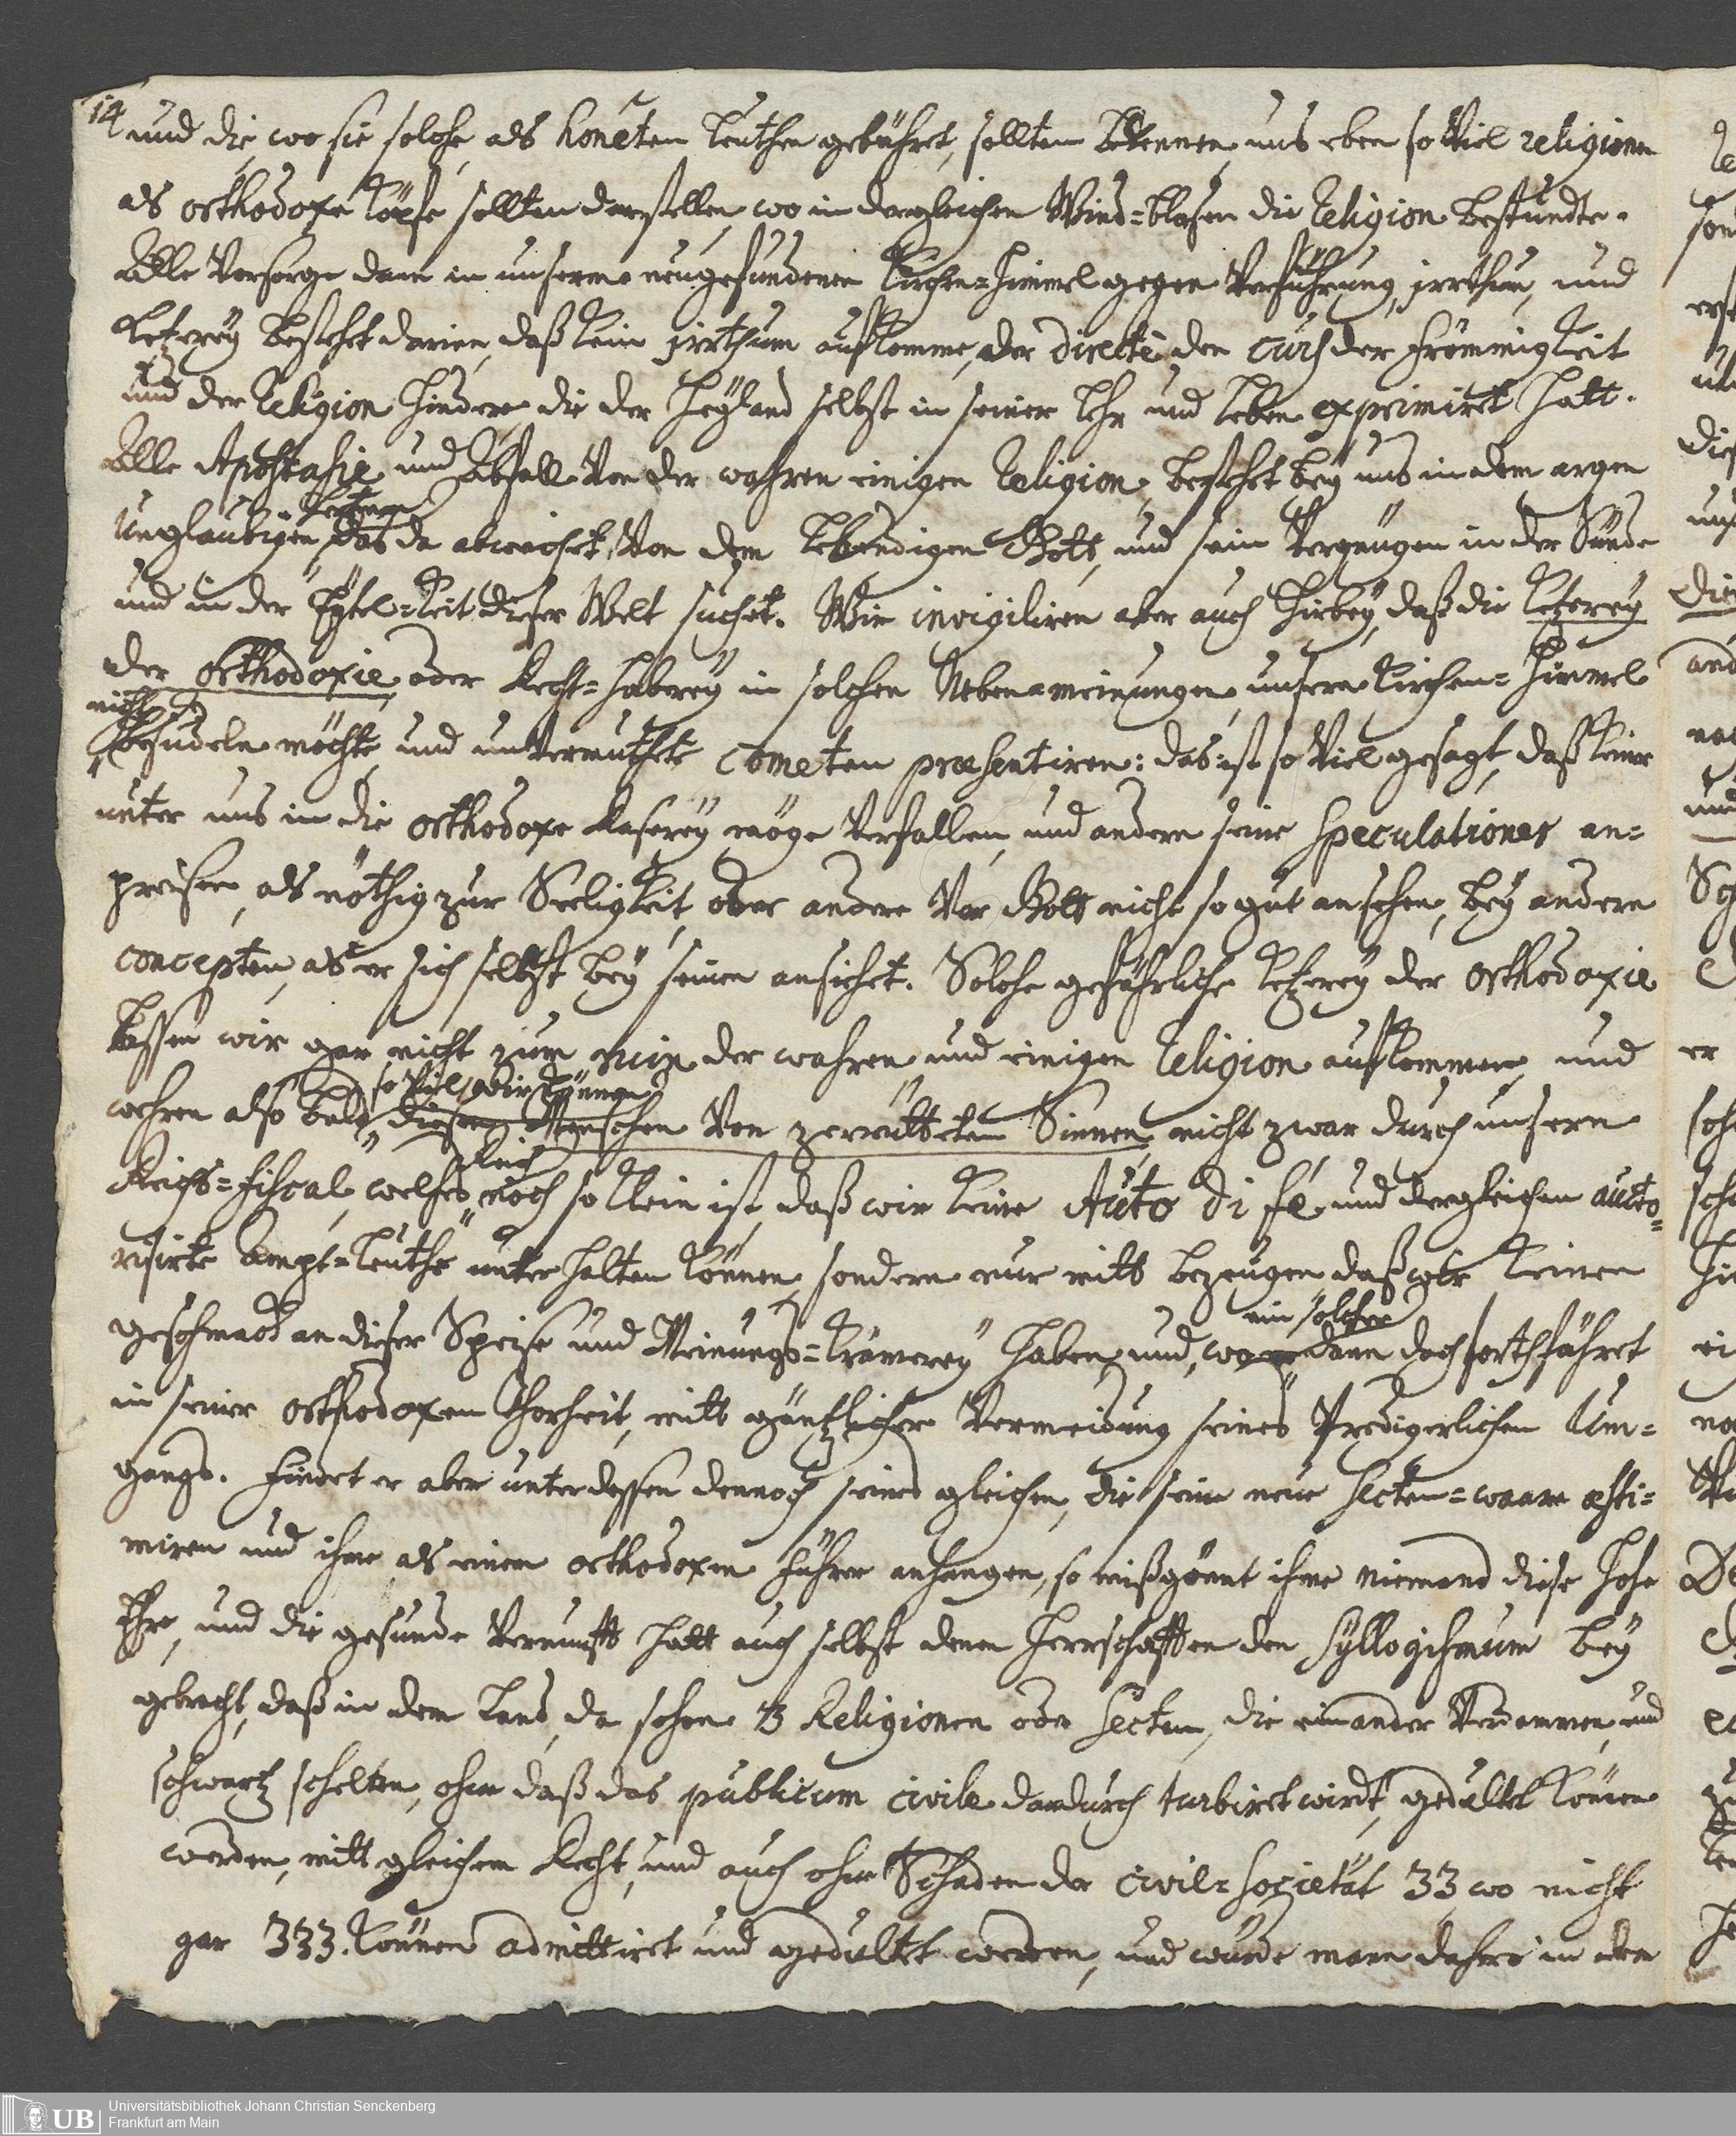 14 und die, wo sie solche, als honéten Leuthen gebühret, sollten bekennen, uns eben so viel religionen
als orthodoxe Köpfe sollten darstellen, wo in dergleichen Wind=blasen die Religion bestündte.
Alle Vorsorge dann in unserm neugefundenen Kirchen=himmel gegen Verführung, irrthum, und
Ketzerey bestehet darinn, daß kein irrthum aufkomme, der directè den curs der frömmigkeit
und der Religion hindere, die der Heyland selbst in seiner Lehr und Leben exprimiret hatt.
Alle Apostasie und Abfall von der wahren einigen Religion, bestehet bey uns in dem argen
unglaubigen Hertzen, das da abweichet von dem Lebendigen Gott, und sein Vergnügen in der Sünde
und in der Eytel=keit dieser Welt suchet. Wir invigiliren aber auch hirbey, daß die Ketzerey
der Orthodoxie, oder Recht=haberey in solchen Neben=meinungen, unsern Kirchen=himmel
nicht besudeln möchte, und unvermuthete Cometen præsentiren: das ist so viel gesagt, daß keiner
unter uns in die orthodoxe Raserey möge verfallen, und andern seine speculationes an=
preisen, als nöthig zur Seeligkeit, oder andere vor Gott nicht so gut ansehen, bey andern
concepten, als er sich selbst bey seinen ansiehet. Solche gefährliche Ketzerey der Orthodoxie
lassen wir gar nicht zum ruin der wahren und einigen Religion aufkommen, und
wehren also bald so viel wir können diesen Menschen von zerrütteten Sinnen, nicht zwar durch unsern
Reichs=fiscal, welches Reich noch so klein ist, daß wir keine Auto di fé und dergleichen aucto=
risirte Ampt=Leuthe unterhalten können, sondern nur mitt bezeugen daß wir keinen
geschmack an dieser Speise und Meinungs=krämerey haben, und, wo ein solcher dann doch forthfähret
in seiner orthodoxen Thorheit, mitt gäntzlicher Vermeidung seines Predigerlichen Um=
gangs. Findet er aber unterdessen dennoch seines gleichen, die seine neue Secten=waare æsti=
miren und ihme als einem orthodoxen führer anhangen, so mißgönnt ihme niemand diese hohe
Ehre, und die gesunde Vernunfft hatt auch selbst denen Herrschafften den Syllogismum bey
gebracht, daß in dem Land, da schon 3 Religionen oder Secten, die einander verdammen, und
schwartz schelten, ohne daß das publicum civile dardurch turbiret wird, gedultet können
werden, mitt gleichem Recht, und auch ohne Schaden der Civil=societät 33, wo nicht
gar 333. können admittiret und gedultet werden, und würde man dahero in dem
Universitätsbibliothek Johann Christian Senckenberg
Frankfurt am Main
UB